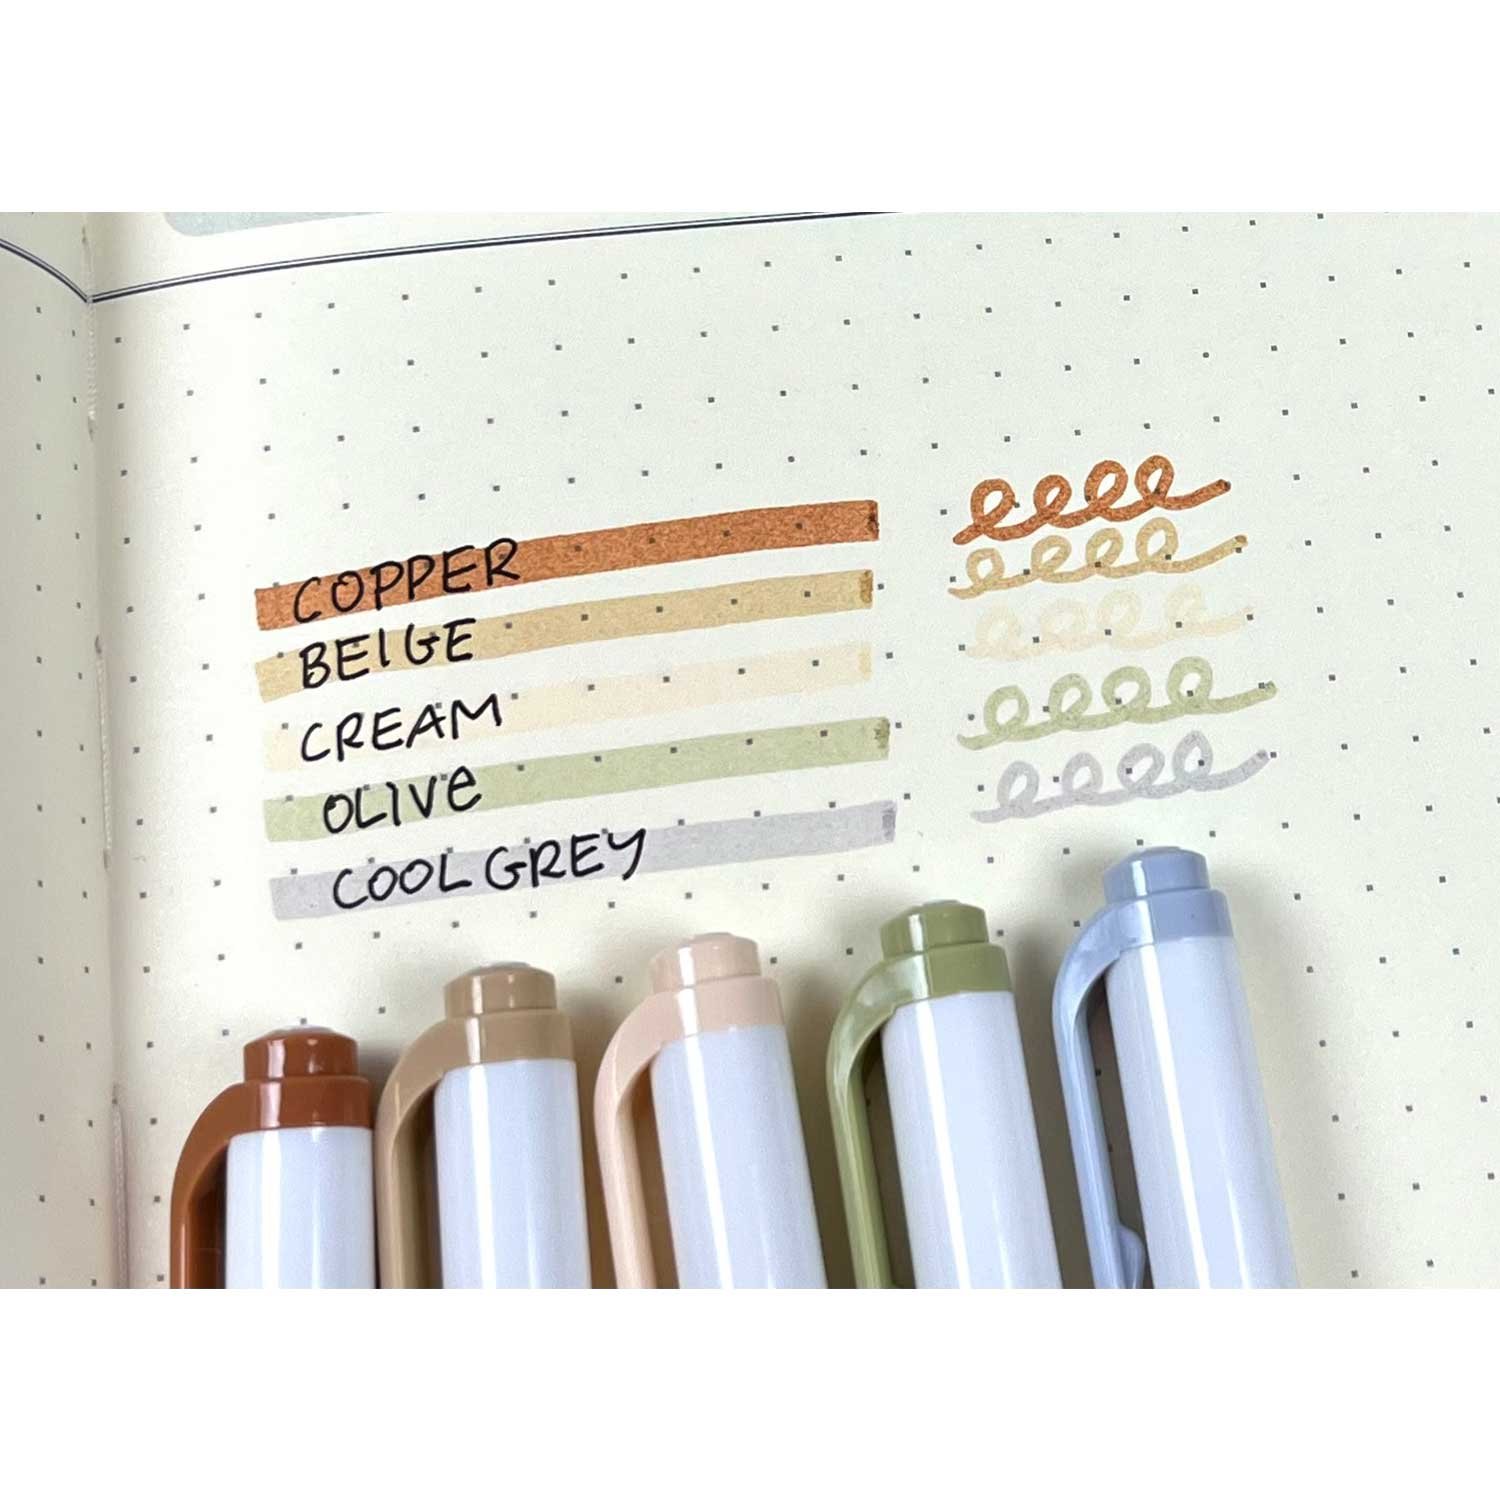 COPPER
BEIGE
CREAM
OLIVe
COOL GREY